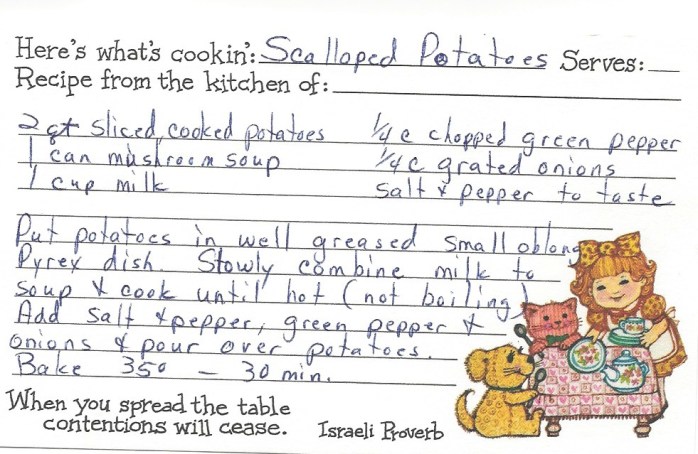 Here's what's cookin': Scalloped Potatoes Serves:
Recipe from the kitchen of:
2 qt sliced, cooked potatoes 1/4 c chopped green pepper
1 can mushroom soup 1/4 c grated onions
1 cup milk salt & pepper to taste
Put potatoes in well greased small oblong
Pyrex dish. Slowly combine milk to
soup & cook until hot (not boiling)
Add salt & pepper, green pepper &
onions & pour over potatoes.
Bake 350 – 30 min.
When you spread the table
contentions will cease. Israeli Proverb